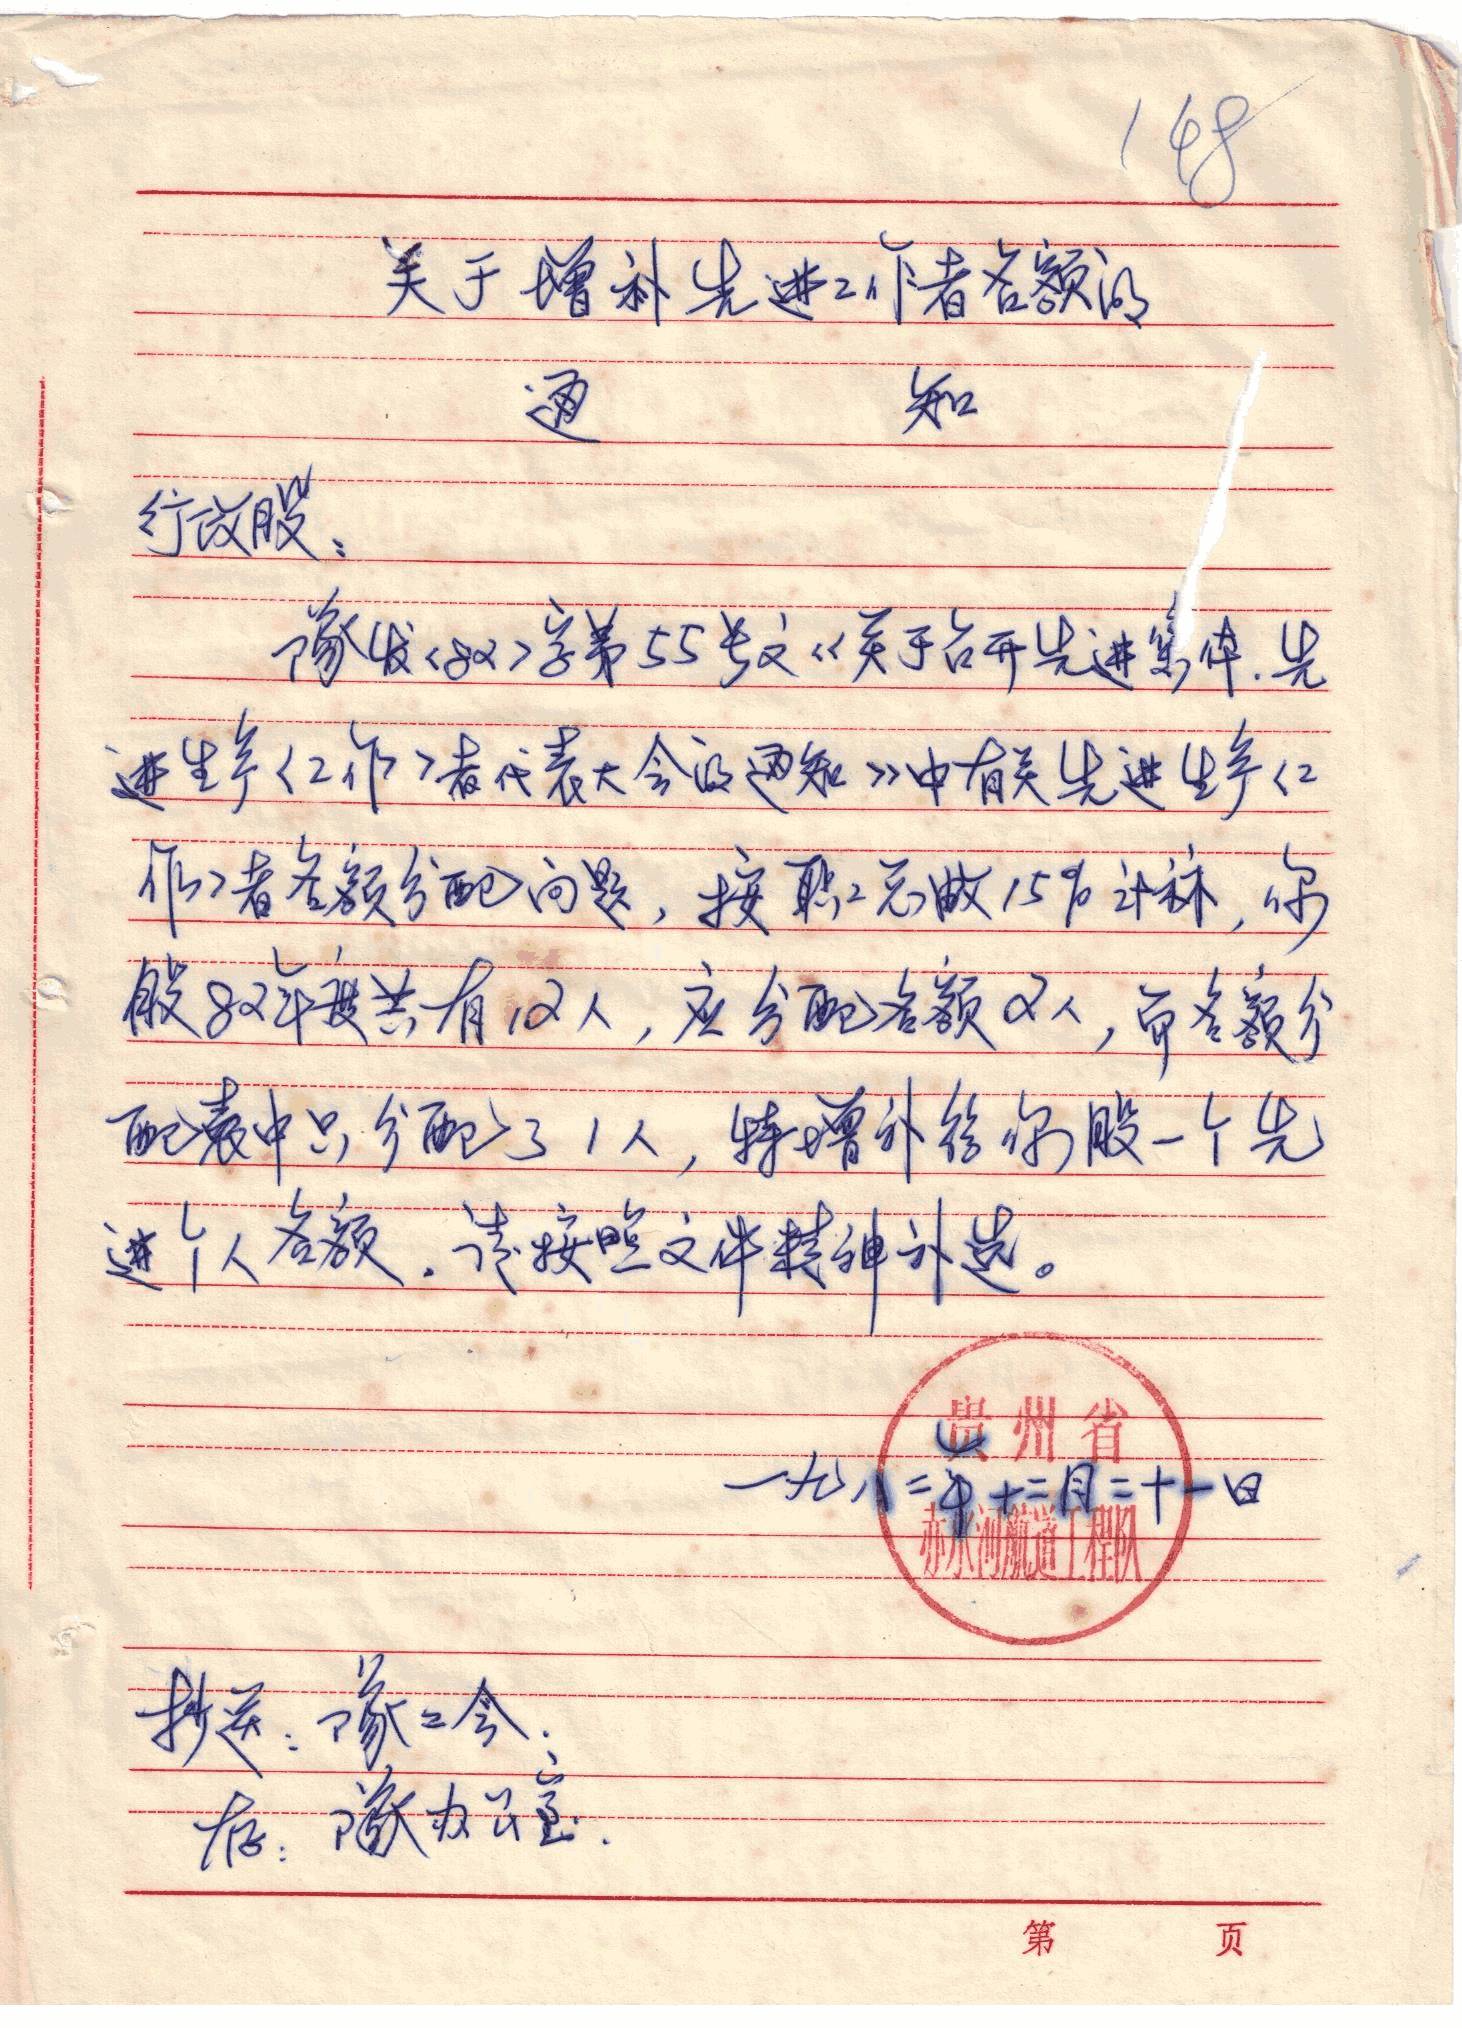 148
关于增补先进工作者名额的
通知
行政股：
队发<82>字第55号文《关于召开先进集体.先
进生产<工作>者代表大会的通知》中有关先进生产<工
作>者名额分配问题，按职工总数15%计标，你
股82年度共有12人，应分配名额2人，而名额分
配表中只分配了1人，特增补给你股一个先
进个人名额．请按照文件精神补选。
贵州省
一九八二年十二月二十一日
赤水河航道工程队
抄送：队工会．
存：队办公室．
第 页